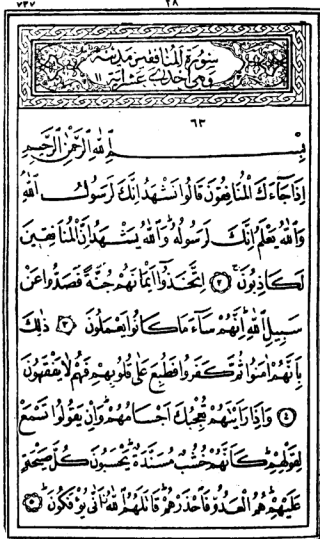 ٧٣٧ ٢٨
سُورَةُ الْمُنَافِقِينَ مَدَنِيَّةٌ
وَهِيَ إِحْدَى عَشْرَةَ آيَةً ١١
٦٣
بِسْمِ اللهِ الرَّحْمٰنِ الرَّحِيمِ
إِذَا جَآءَكَ الْمُنَافِقُونَ قَالُوا نَشْهَدُ إِنَّكَ لَرَسُولُ اللهِ
وَاللهُ يَعْلَمُ إِنَّكَ لَرَسُولُهُ وَاللهُ يَشْهَدُ إِنَّ الْمُنَافِقِينَ
لَكَاذِبُونَ ٢ اِتَّخَذُوا أَيْمَانَهُمْ جُنَّةً فَصَدُّوا عَنْ
سَبِيلِ اللهِ إِنَّهُمْ سَآءَ مَا كَانُوا يَعْمَلُونَ ٣ ذٰلِكَ
بِأَنَّهُمْ اٰمَنُوا ثُمَّ كَفَرُوا فَطُبِعَ عَلٰى قُلُوبِهِمْ فَهُمْ لَا يَفْقَهُونَ
٤ وَإِذَا رَأَيْتَهُمْ تُعْجِبُكَ أَجْسَامُهُمْ وَإِنْ يَقُولُوا تَسْمَعْ
لِقَوْلِهِمْ كَأَنَّهُمْ خُشُبٌ مُسَنَّدَةٌ يَحْسَبُونَ كُلَّ صَيْحَةٍ
عَلَيْهِمْ هُمُ الْعَدُوُّ فَاحْذَرْهُمْ قَاتَلَهُمُ اللهُ أَنّٰى يُؤْفَكُونَ ٥